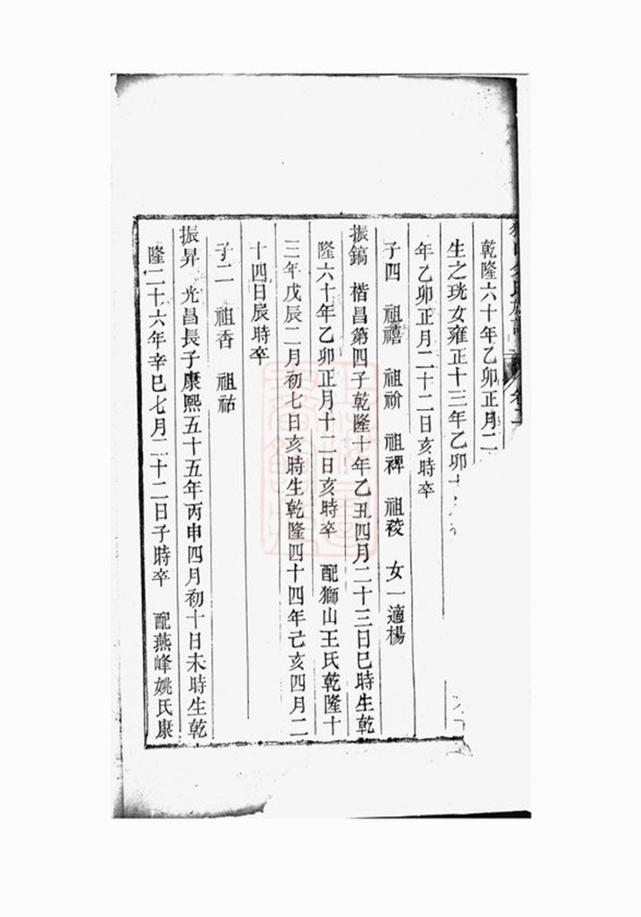 乾隆六十年乙卯正月二
生之珖女雍正十三年乙卯十
年乙卯正月二十二日亥時卒
子四　祖禧　祖祄　祖裨　祖祾　女一適楊
振鎬　楷昌第四子乾隆十年乙丑四月二十三日巳時生乾
隆六十年乙卯正月十二日亥時卒　配獅山王氏乾隆十
三年戊辰二月初七日亥時生乾隆四十四年己亥四月二
十四日辰時卒
子二　祖香　祖祐
振昇　光昌長子康熙五十五年丙申四月初十日未時生乾
隆二十六年辛巳七月二十二日子時卒　配燕峰姚氏康